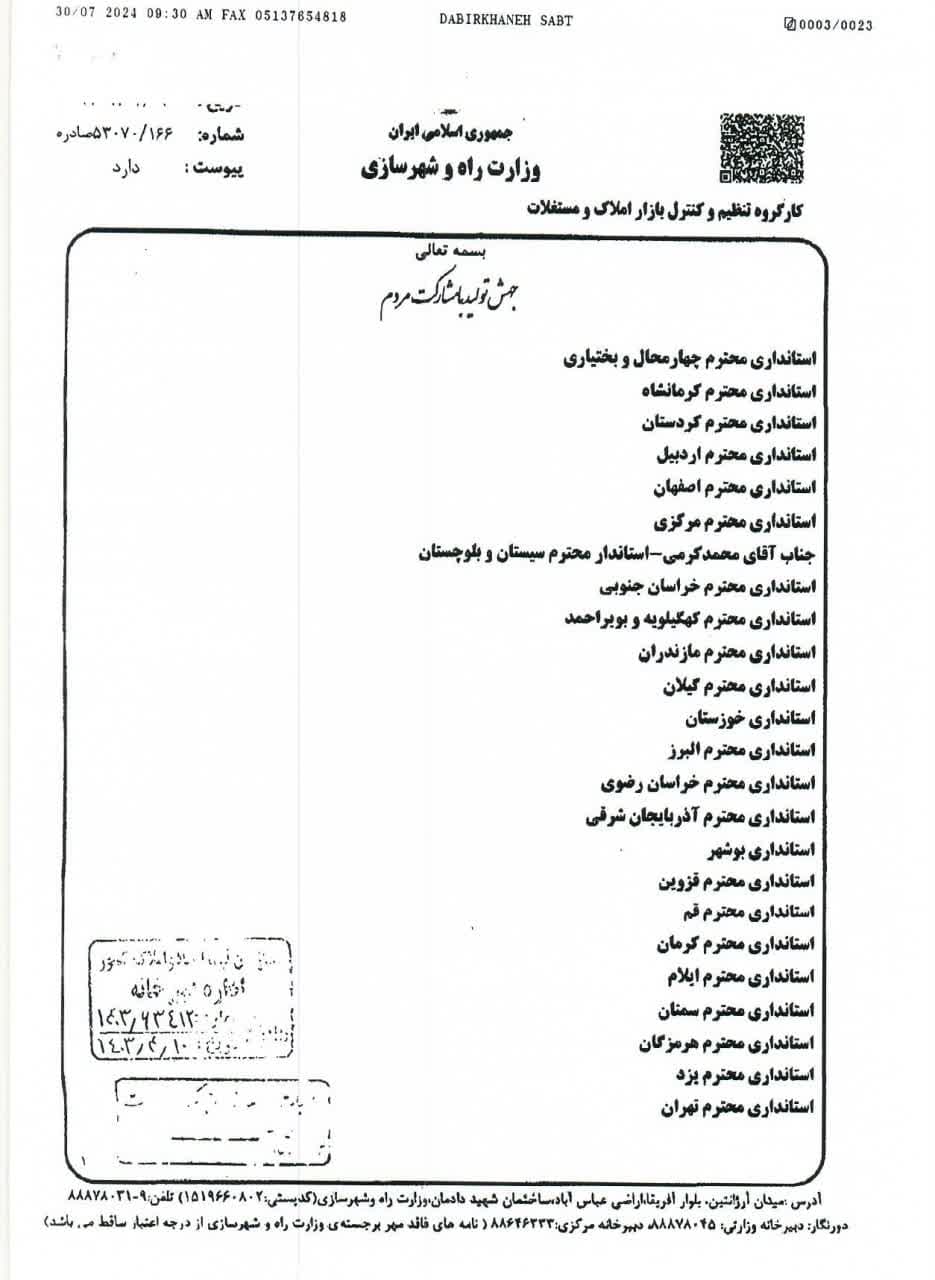 30/07 2024 09:30 AM FAX 05137654818 DABIRKHANEH SABT 0003/0023
جمهوری اسلامی ایران
وزارت راه و شهرسازی
کارگروه تنظیم و کنترل بازار املاک و مستغلات
شماره: ۵۳۰۷۰/۱۶۶صادره
پیوست: دارد
بسمه تعالی
جهش تولید با مشارکت مردم
استانداری محترم چهارمحال و بختیاری
استانداری محترم کرمانشاه
استانداری محترم کردستان
استانداری محترم اردبیل
استانداری محترم اصفهان
استانداری محترم مرکزی
جناب آقای محمدکرمی-استاندار محترم سیستان و بلوچستان
استانداری محترم خراسان جنوبی
استانداری محترم کهگیلویه و بویراحمد
استانداری محترم مازندران
استانداری محترم گیلان
استانداری خوزستان
استانداری محترم البرز
استانداری محترم خراسان رضوی
استانداری محترم آذربایجان شرقی
استانداری بوشهر
استانداری محترم قزوین
استانداری محترم قم
استانداری محترم کرمان
استانداری محترم ایلام
استانداری محترم سمنان
استانداری محترم هرمزگان
استانداری محترم یزد
استانداری محترم تهران
۱
آدرس :میدان آرژانتین، بلوار آفریقا،اراضی عباس آباد،ساختمان شهید دادمان،وزارت راه وشهرسازی(کدپستی:۱۵۱۹۶۶۰۸۰۲) تلفن:۹-۸۸۸۷۸۰۳۱
دورنگار: دبیرخانه وزارتی: ۸۸۸۷۸۰۴۵، دبیرخانه مرکزی:۸۸۶۴۶۲۳۳ ( نامه های فاقد مهر برجسته‌ی وزارت راه و شهرسازی از درجه اعتبار ساقط می باشد)